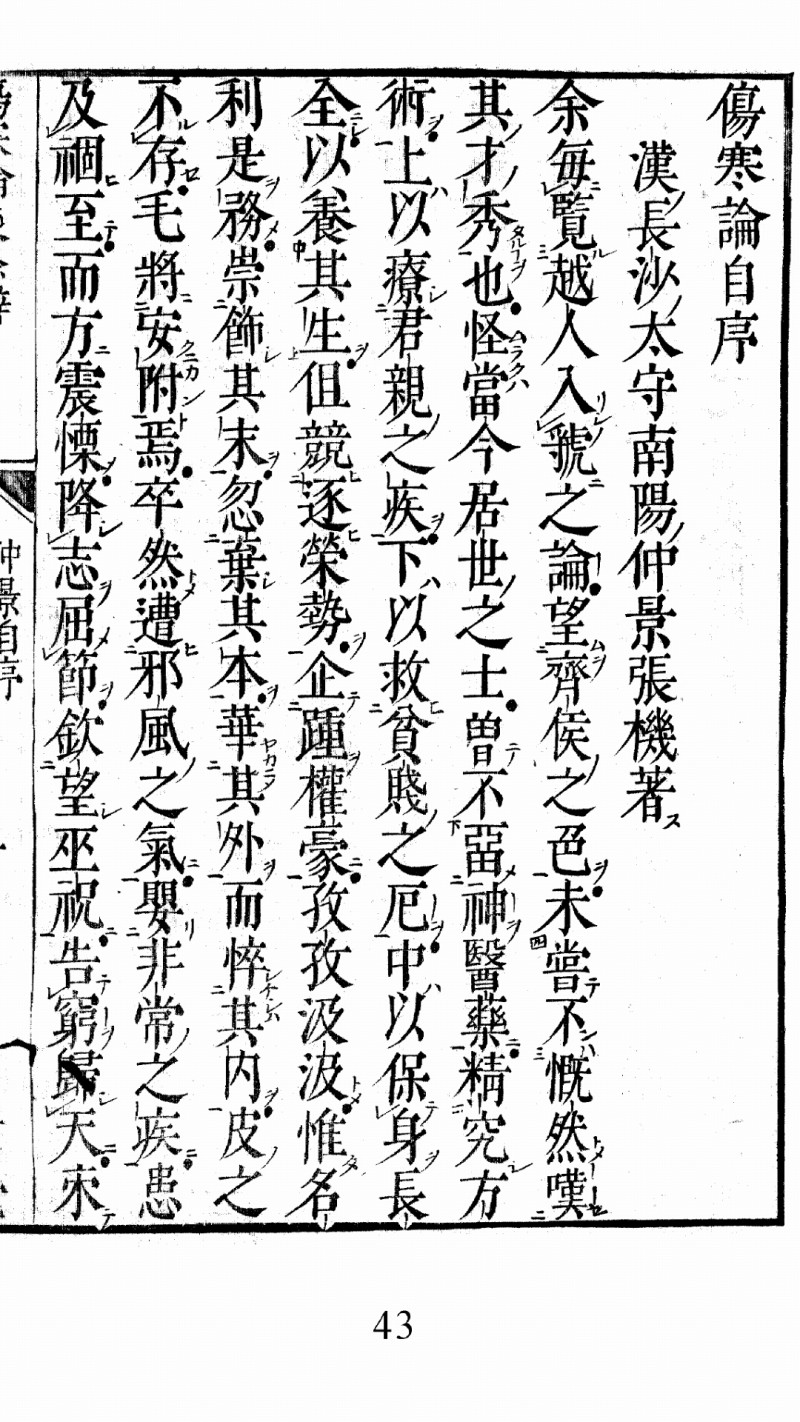 傷寒論自序
漢長沙太守南陽仲景張機著
余每覧越人入虢之論望齊侯之色未嘗不慨然嘆
其才秀也怪當今居世之士曽不畱神醫藥精究方
術上以療君親之疾下以救貧賤之厄中以保身長
全以養其生但競逐榮勢企踵權豪孜孜汲汲惟名
利是務崇飾其末忽棄其本華其外而悴其内皮之
不存毛將安附焉卒然遭邪風之氣嬰非常之疾患
及禍至而方震慄降志屈節欽望巫祝告窮歸天束
仲景自序
43